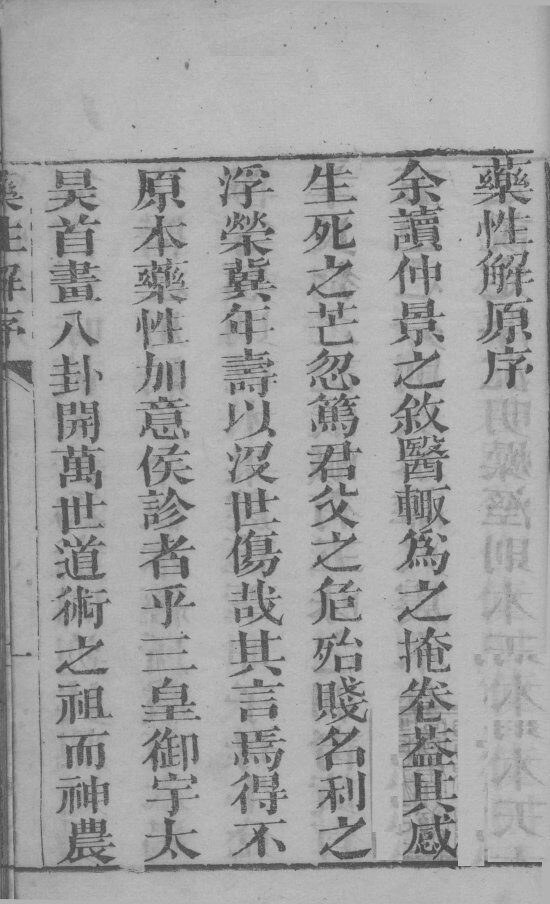 藥性解原序
余讀仲景之敘醫輙爲之掩卷葢其感
生死之芒忽篤君父之危殆賤名利之
浮榮冀年壽以沒世傷哉其言焉得不
原本藥性加意侯診者乎三皇御宇太
昊首畫八卦開萬世道術之祖而神農
藥性解序
一